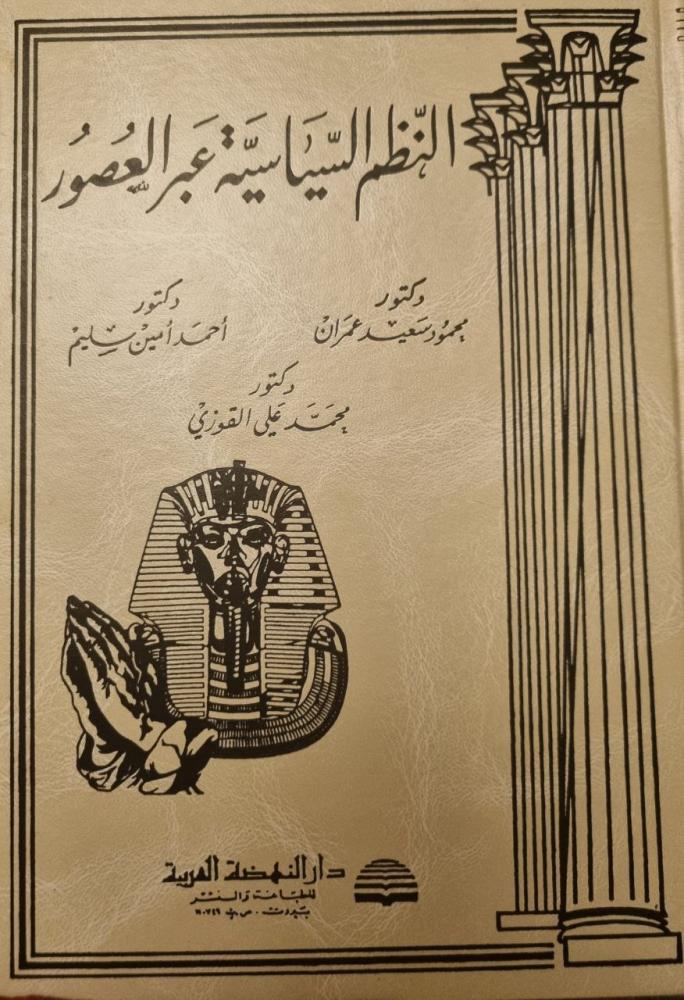 النّظم السّياسيّة عَبر العُصُور
دكتور
محمود سَعيد عمرَان
دكتور
أحمَد أمين سليم
دكتور
محمَّد عَلي القوزي
دار النهضة العربية
للطباعة والنشر
بيروت - ص.ب ٧٤٩-١١